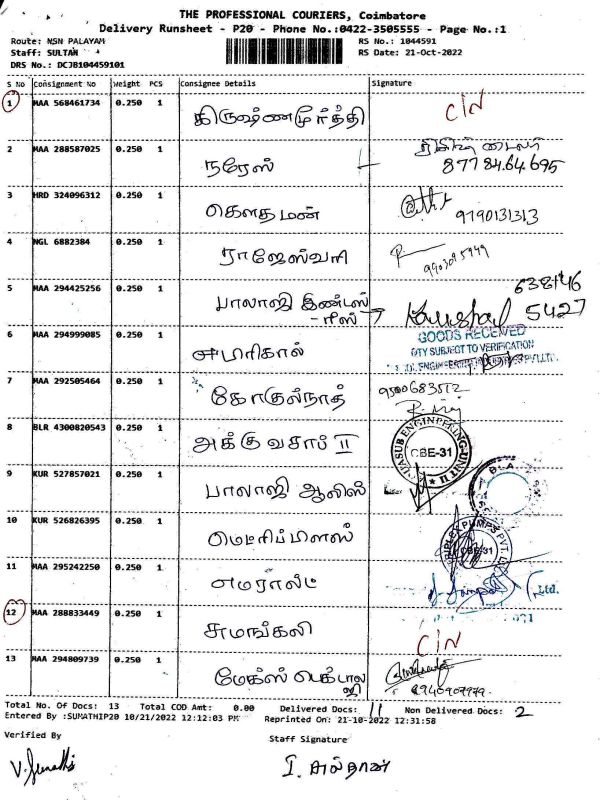 THE PROFESSIONAL COURIERS, Coimbatore
Delivery Runsheet - P20 - Phone No.:0422-3505555 - Page No.:1
Route: NSN PALAYAM
RS No.: 1044591
Staff: SULTAN
RS Date: 21-Oct-2022
DRS No.: DCJB104459101
S No Consignment No Weight PCS Consignee Details Signature
1 MAA 568461734 0.250 1 கிருஷ்ணமூர்த்தி C/N
2 MAA 288587025 0.250 1 நரேஸ் 87784.64.695
3 HRD 324096312 0.250 1 கௌதமன் 9790131313
4 NGL 6882384 0.250 1 ராஜேஸ்வரி
5 MAA 294425256 0.250 1 பாலாஜி இண்டஸ்
-ரீஸ் → 638146
5427
6 MAA 294999085 0.250 1
GOODS RECEIVED
QTY SUBJECT TO VERIFICATION
7 MAA 292505464 0.250 1 கோகுல்நாத் 9500683512
8 BLR 4300820543 0.250 1 அக்குவசாப் II
ENGINEERING-UNIT II
CBE-31
9 KUR 527857021 0.250 1 பாலாஜி ஆலிஸ்
10 KUR 526826395 0.250 1
PUMPS PVT.
CBE-31
11 MAA 295242250 0.250 1 எமரால்ட்
Ltd.
12 MAA 288833449 0.250 1 சுமங்கலி C/N
13 MAA 294809739 0.250 1 மேக்ஸ் டெக்னால
ஜி
Total No. Of Docs: 13 Total COD Amt: 0.00 Delivered Docs: 11 Non Delivered Docs: 2
Entered By :SUMATHIP20 10/21/2022 12:12:03 PM Reprinted On: 21-10-2022 12:31:58
Verified By
Staff Signature
I. சுல்தான்